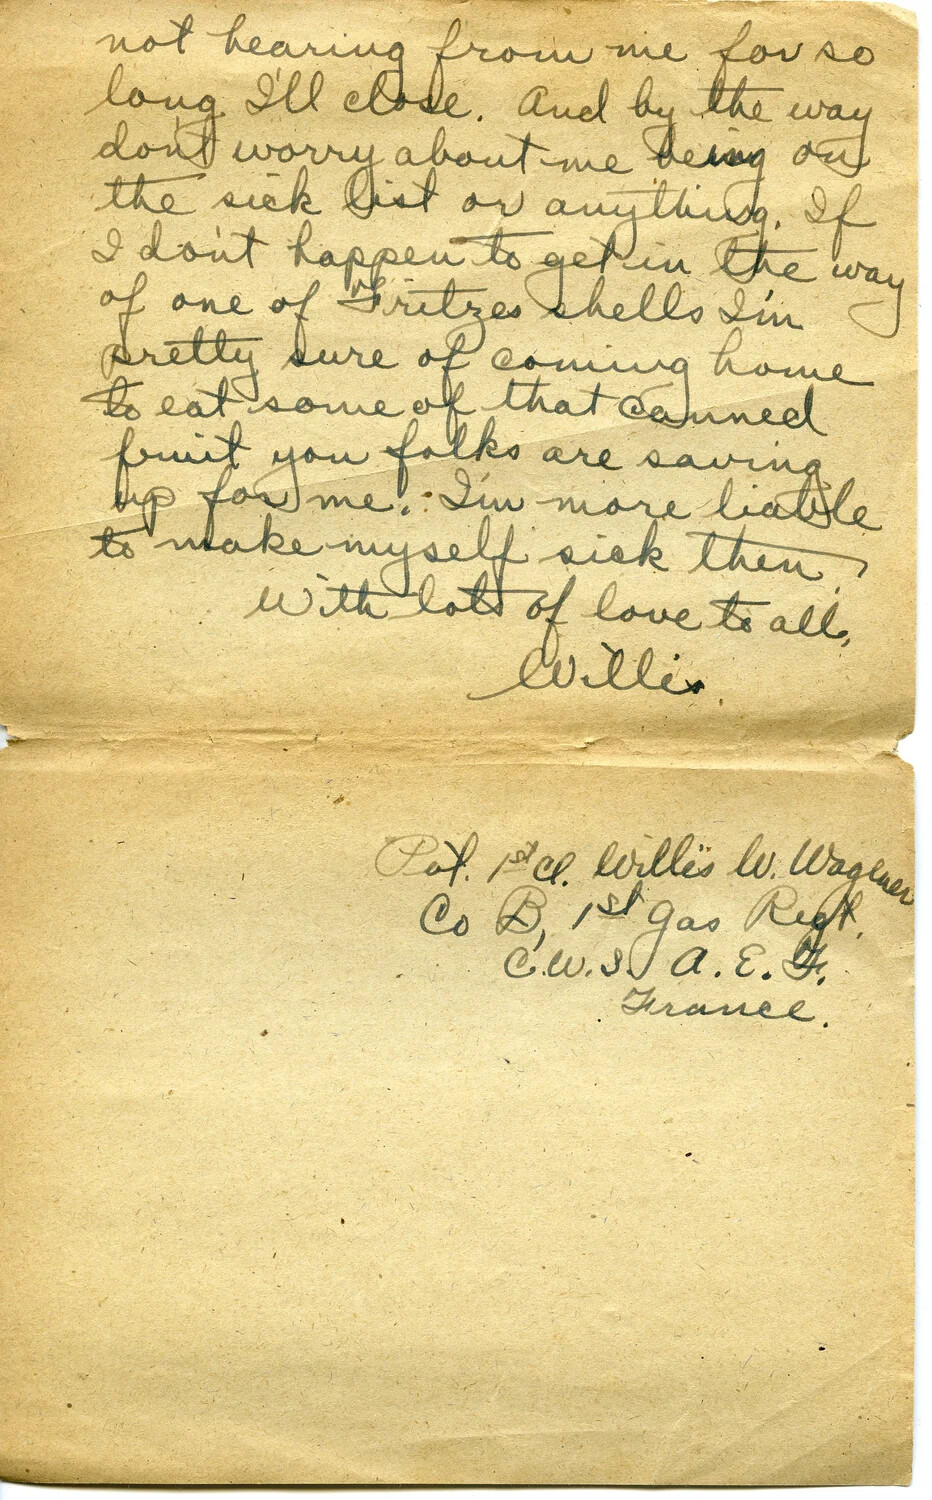 not hearing from me for so
long I'll close. And by the way
don't worry about me being on
the sick list or anything. If
I don't happen to get in the way
of one of Fritzes shells I'm
pretty sure of coming home
to eat some of that canned
fruit you folks are saving
up for me. I'm more liable
to make myself sick then.
With lots of love to all,
Willis.
Pvt. 1st Cl. Willis W. Wagener
Co B, 1st Gas Regt.
C.W.S. A.E.F.
France.